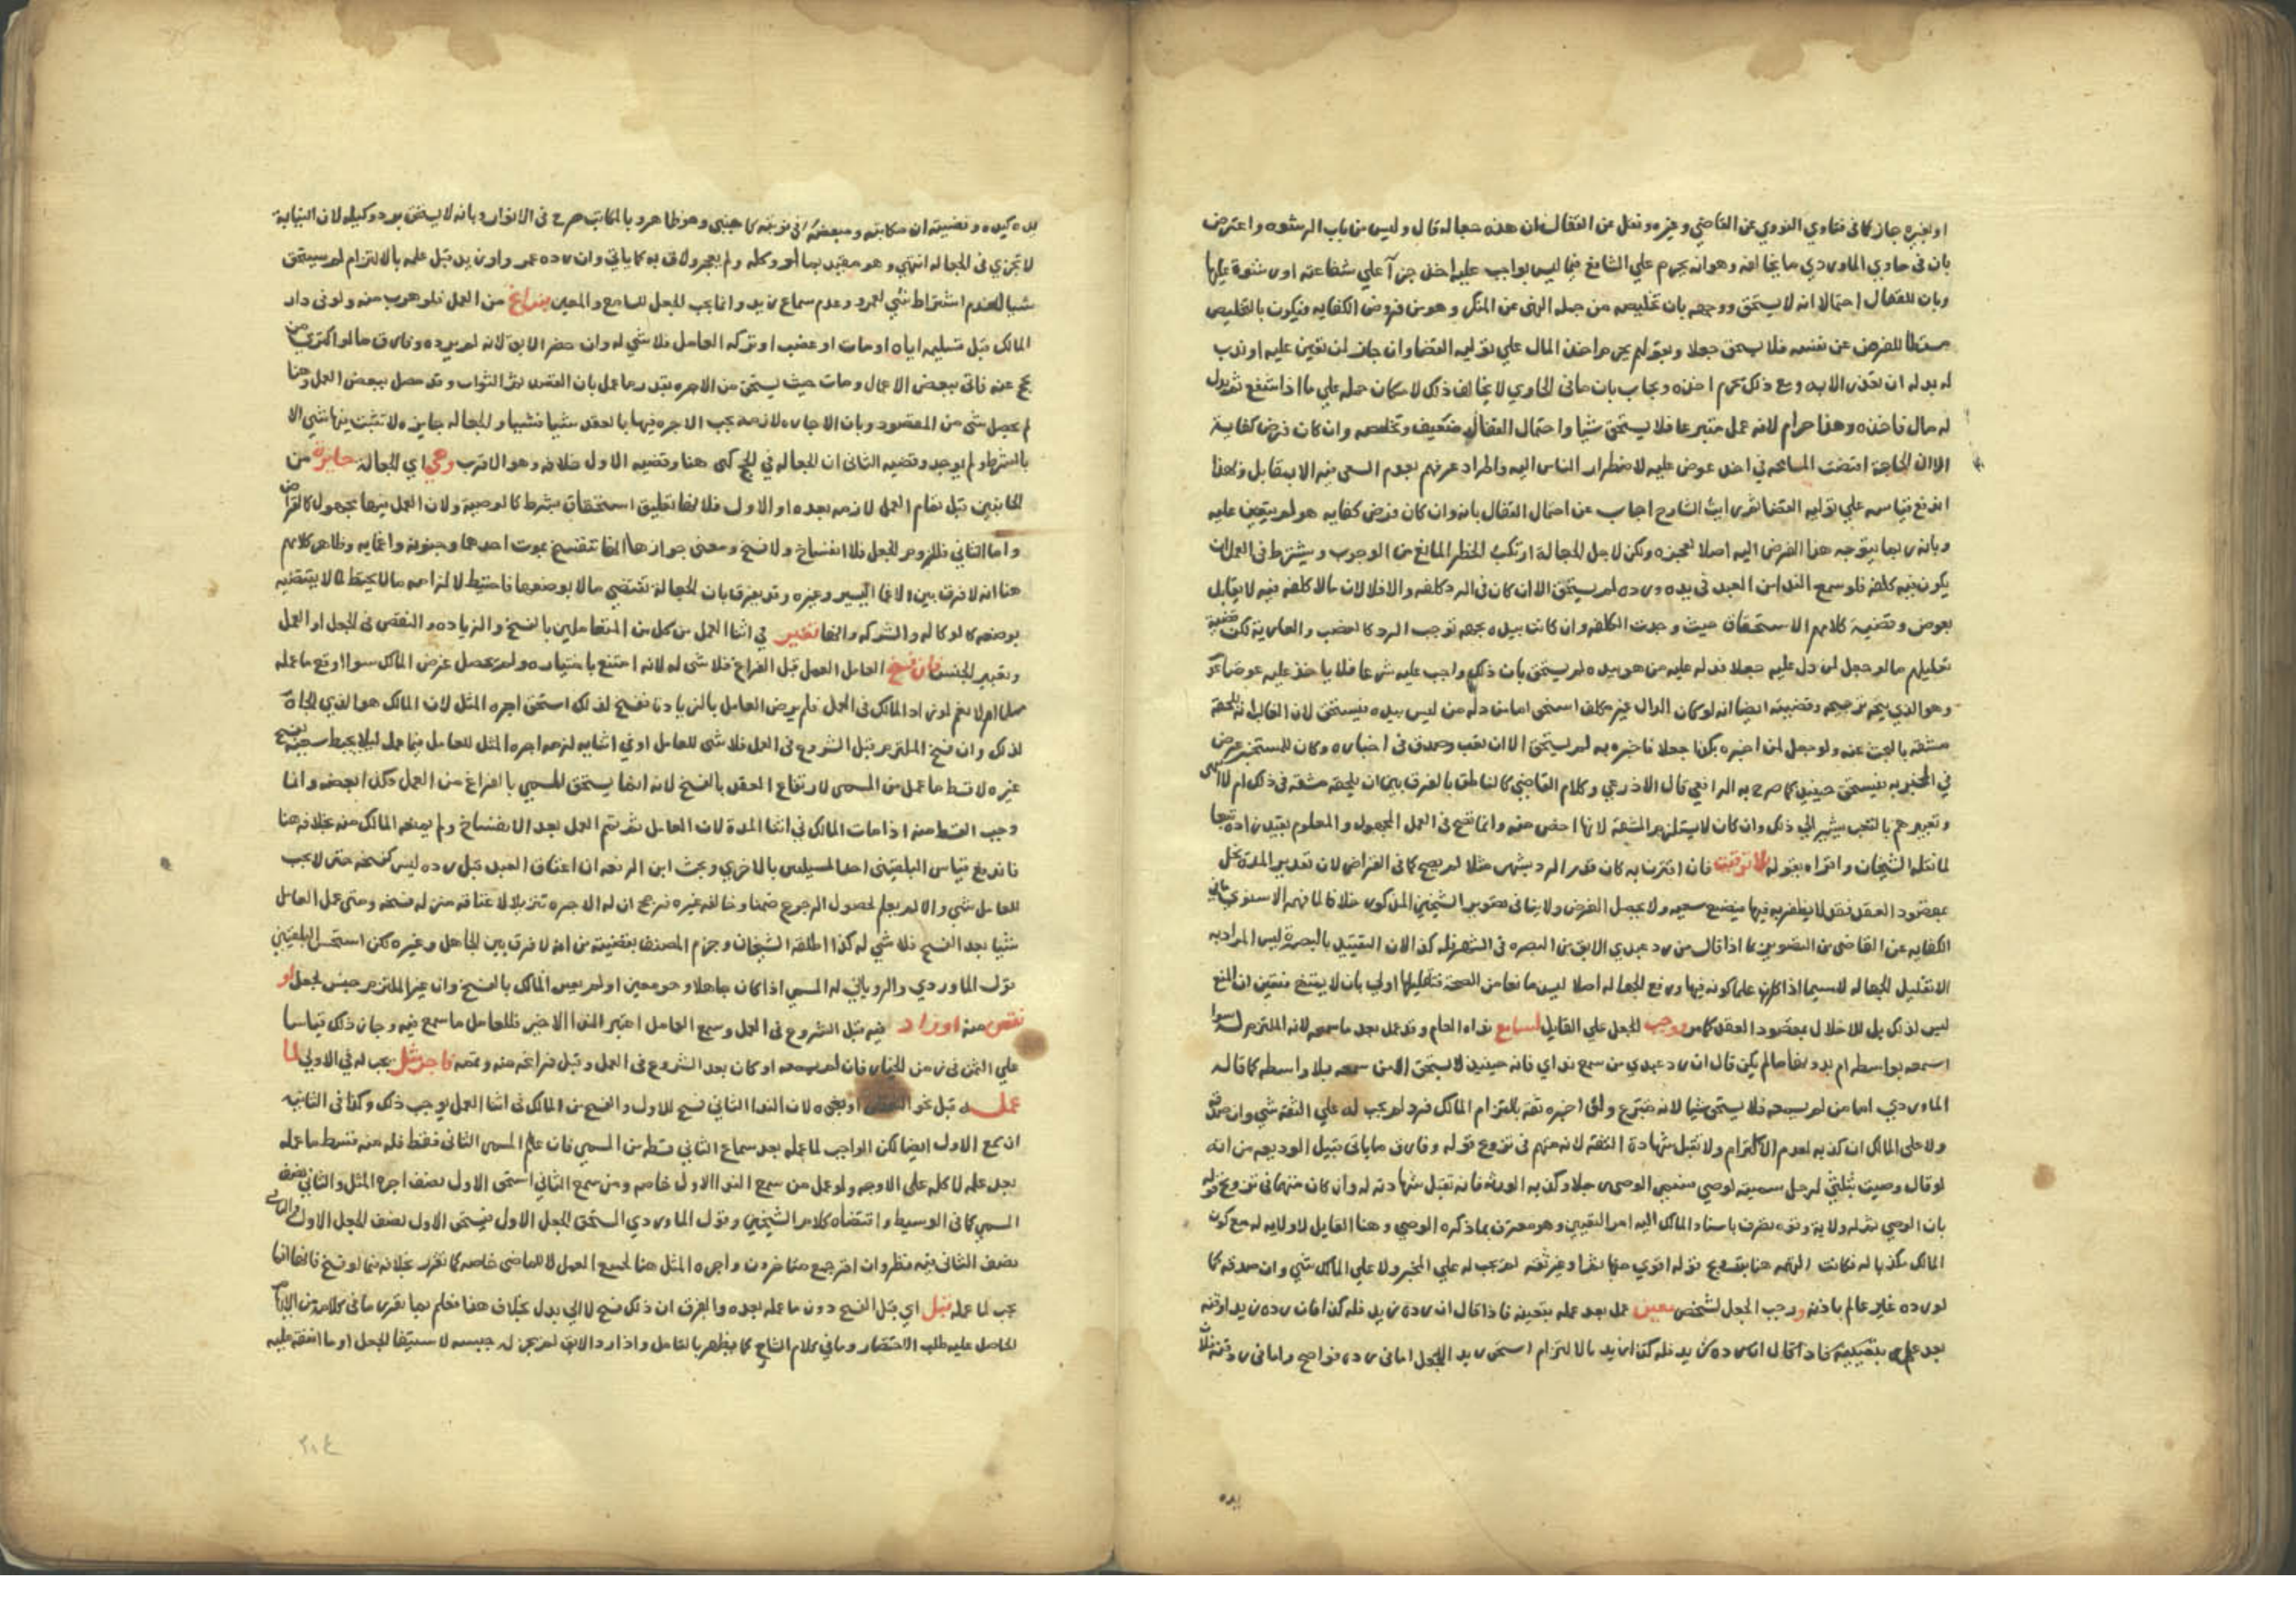 او لغيره جاز كما فى فتاوي النووي عن القاضي وغيره ونقل عن القفال ان هذه جعاله قال وليس من باب الرشوه واعترض
بان فى حاوي الماوردي ما يخالفه وهوانه يحرم علي الشافع فيما ليس بواجب عليه اخذ جزآ علي شفاعته او رشوة عليها
وبان للقفال احتمالا انه لا يستحق ووجهه بان تخليصه من جمله النهى عن المنكر وهو من فروض الكفايه فيكون بالتخليص
مسقطا للفرض عن نفسه فلا يستحق جعلا وبقولهم يحرم اخذ المال علي توليه القضا وان جاز لمن تعين عليه او ندب
له بذله ان تعذر الابه ومع ذلك يحرم اخذه ويجاب بان مافى الحاوي لا يخالف ذلك لامكان حمله علي ما اذا شفع
له مال فاخذه وهذا حرام لانه عمل متبرعا فلا يستحق شيا واحتمال القفال ضعيف وتخلصه وان كان فرض كفاية
الا ان الحاجة اقتضت المسامحه في اخذ عوض عليه لاضطرار الناس اليه واطراد عرفهم بعدم السعى فيه الا بمقابل وبهذا
اندفع قياسه علي توليه القضا ثم رايت الشارح اجاب عن احتمال القفال بانه وان كان فرض كفايه هو لم يتعين عليه
وبانه ربما يتوجه هذا الفرض اليه اصلا لعجزه ولكن لاجل الجعالة ارتكب الخطر المانع من الوجوب ويشترط فى العمل ان
يكون فيه كلفه فلو سمع الندا من العبد فى يده ورده لم يستحق الا ان كان فى الرد كلفه والا فلا لان مالا كلفه فيه لا يقابل
بعوض وقضية كلامهم الاستحقاق حيث وجدت الكلفه وان كانت بيده بجهه توجب الرد كالغصب والعاريه لكن قضية
تعليلهم مالو جعل لمن دل عليه جعلا فدله عليه من هو بيده لم يستحق بان ذلك واجب عليه شرعا فلا ياخذ عليه عوضا
وهو الذي يتجه ترجيحه وقضيته ايضا انه لو كان الدال غير مكلف استحق اما من دله من ليس بيده فيستحق لان الغالب انه تلحقه
مشقه بالبحث عنه ولو جعل لمن اخبره بكذا جعلا فاخبره به لم يستحق الا ان تعب وصدق فى اخباره وكان للمستخبر غرض
في المخبر به فيستحق حينيذ كما صرح به الرافعي قال الاذرعي وكلام القاضي كالناطق بالفرق بين ان يلحقه مشقه فى ذلك ام لا انتهى
وتعبيرهم بالتعب يشير الي ذلك وان كان لا يستلزم المشقه لانها اخص منه وانما تصح فى العمل المجهول والمعلوم بقيد زاده تبعا
لما نقله الشيخان واقراه بقوله بلا توقيت فان اقترن به كان قدر الرد بشهر مثلا لم يصح كما فى القراض لان تقدير المدة يخل
بمقصود العقد فقد لا يظفر به فيها فيضيع سعيه ولا يحصل الغرض ولا ينافى تصوير الشيخين المذكور خلافا لما فهمه الاسنوي
الكفايه عن القاضى من التصوير بما اذا قال من رد عبدي الابق من البصره فى الشهر فله كذا لان التقييد بالبصرة ليس المراد به
الا تقليل الجعاله لاسيما اذا كان على كونه فيها ورفع الجعاله اصلا ليس مانعا من الصحة فتقليلها اولي بان لا يمتنع فتعين ان المنع
ليس لذلك بل للاخلال بمقصود العقد كما مر ووجب الجعل علي القايل لسامع نداه العام وقد عمل بعد ما سمعه لانه الملتزم له سوا
اسمعه بواسطه ام بدونها مالم يكن قال ان رد عبدي من سمع نداي فانه حينيذ لا يستحق الا من سمعه بلا واسطه كما قاله
الماوردي اما من لم يسمعه فلا يستحق شيا لانه متبرع ولو اخبره ثقه بالتزام المالك فرد لم يجب له علي الثقه شي وان صدق
ولا على المالك ان كذبه لعدم الالتزام ولا تقبل شهادة الثقه لانه متهم فى ترويج قوله وفارق ماياتى قبيل الوديعه من انه
لو قال وصيت بثلثي لرجل سميته لوصي فسمى الوصى رجلا وكذبه الورثه فانه تقبل شهادته له وان كان متهما فى ترويج قوله
بان الوصي نقله ولاية وقوه تصرف باسناد المالك اليه امر التعيين وهو معترف بماذكره الوصي وهنا القايل لا ولايه له مع كون
المالك مكذبا له فكانت التهمه هنا بترويج قوله اقوي منها نقلا وغير ثقه لم يجب له علي المخبر ولا علي المالك شي وان صدقه كما
لو رده غير عالم باذنه ووجب الجعل لشخص معين عمل بعد علمه بتعينه فاذا قال ان رده زيد فله كذا فان رده زيد او قنه
بعد علمه بتعيينه فاذا قال ان رده زيد فله كذا زيد بالالتزام استحق زيد الجعل اما فى رده فواضح واما فى رد قنه فلان
يده
يده كيده وقضيته ان مكاتبه ومبعضه فى نوبته كاجنبى وهو ظاهر وبالمكاتب صرح فى الانوار وبانه لا يستحق برد وكيله لان النيابة
لا تجزي فى الجعاله انتهي وهو مقيد بما لو وكله ولم يعجز ولاق به كما ياتي وان رده عمر واو زيد قبل علمه بالالتزام لم يستحق
شيا لعدم اشتراط شي لعمرو وعدم سماع زيد وانما يجب الجعل للسامع والمعين بفراغ من العمل فلو هرب منه ولو فى دار
المالك قبل تسليمه اياه او مات او غصب او تركه العامل فلا شي له وان حضر الابق لانه لم يرده وفارق مالو اكترى من
يحج عنه فاتى ببعض الاعمال ومات حيث يستحق من الاجره بقدر ما عمل بان القصد نفر الثواب وقد حصل ببعض العمل وهنا
لم يحصل شي من المقصود وبان الاجاره لازمه يجب الاجره فيها بالعقد شيا فشيا والجعاله جايزه لا تثبت فيها شي الا
بالشرط ولم يوجد وقضيه الثانى ان الجعاله في الحج كهى هنا وقضيه الاول خلافه وهو الاقرب وهي اي الجعالة جائزة من
الجانبين قبل تمام العمل لازمه بعده اما الاول فلانها تعليق استحقاق بشرط كالوصية ولان العمل فيها مجهول كالقراض
واما الثاني فللزوم الجعل فلا انفساخ ولا فسخ ومعنى جوازها انها تنفسخ بموت احدهما وجنونه واغمايه وظاهر كلامهم
هنا انه لا فرق بين الاغما اليسير وغيره وقد يفرق بان الجعالة تقتضي مالا بوضعها فاحتيط لالزامه مالا يحتط لما لا يقتضيه
بوضعه كالوكاله والشركه وانها تغير في اثنا العمل من كل من المتعاملين بالفسخ والزياده والنقص فى الجعل او العمل
وتغيير الجنس فان فسخ العامل العمل قبل الفراغ فلا شى له لانه امتنع باختياره ولم يحصل غرض المالك سوا اوقع ما عمله
مسلما ام لا نعم لو زاد المالك فى العمل فلم يرض العامل بالزيادة ففسخ لذلك استحق اجره المثل لان المالك هو الذي الجاه
لذلك وان فسخ الملتزم قبل الشروع فى العمل فلا شى للعامل او في اثنايه لزمه اجره المثل للعامل فيما عمل ليلا يحبط سعيه بفسخ
غيره لا قسط ما عمل من المسمى لارتفاع العقد بالفسخ لانه انما يستحق المسمي بالفراغ من العمل فكذا بعضه وانما
وجب القسط منه اذا مات المالك في اثنا المدة لان العامل ثم يتم العمل بعد الانفساخ ولم يمنعه المالك منه بخلافه هنا
فاندفع قياس البلقيني احد المسيلتين بالاخري وبحث ابن الرفعه ان اعتاق العبد قبل رده ليس كفسخه حتى لا يجب
للعامل شي والا لم يعلم لحصول الرجوع ضمنا وخالفه غيره فرجح ان له الاجره تنزيلا لاعتاقه منزله فسخه ومتى عمل العامل
شيا بعد الفسخ فلا شي له كذا اطلقه الشيخان وجزم المصنف بقضيته من انه لا فرق بين الجاهل وغيره لكن استحسن البلقيني
قول الماوردي والروياني له المسمى اذا كان جاهلا وهو معين او لم يعين المالك بالفسخ وان غير الملتزم جنس الجعل او
نقص منه او زاد فيه قبل الشروع فى العمل وسمع العامل اعتبر الندا الاخير فللعامل ما سمع فيه وجاز ذلك قياسا
علي الثمن فى زمن الخيار فان لم يسمعه او كان بعد الشروع فى العمل وقبل فراغه منه ومعه فاجر مثل يجب له في الاولي لما
عمل قبل نحو النقص او بغيره لان الندا الثاني فسخ للاول والفسخ من المالك فى اثنا العمل يوجب ذلك وكذا فى الثانيه
ان سمع الاول ايضا لكن الواجب لما عمله بعد سماع الثاني قسطه من المسمي فان علم المسمى الثانى فقط فله منه قسط ما عمله
بعد علمه لما كله على الاوجه ولو عمل من سمع الندا الاول خاصه ومن سمع الثاني استحق الاول نصف اجرة المثل والثاني نصف
المسمي كما فى الوسيط واقتضاه كلام الشيخين وقول الماوردي استحق الجعل الاول فيستحق الاول نصف الجعل الاول والثانى
نصف الثانى فيه نظر وان رجحه متاخرون واجره المثل هنا لجميع العمل لا للماضى خاصه كما تقرر بخلافه فيما لو فسخ فانها انما
تجب لما عمله قبل اي قبل الفسخ دون ما عمله بعده والفرق ان ذلك فسخ لا الي بدل بخلاف هذا فعلم بما تقرر مافى كلامه من الايهام
الحامل عليه طلب الاختصار وما في كلام الشارح كما يظهر بالتامل واذا رد الابق لم يجز له حبسه لاستيفا الجعل او ما انفقه عليه
٢٠٤